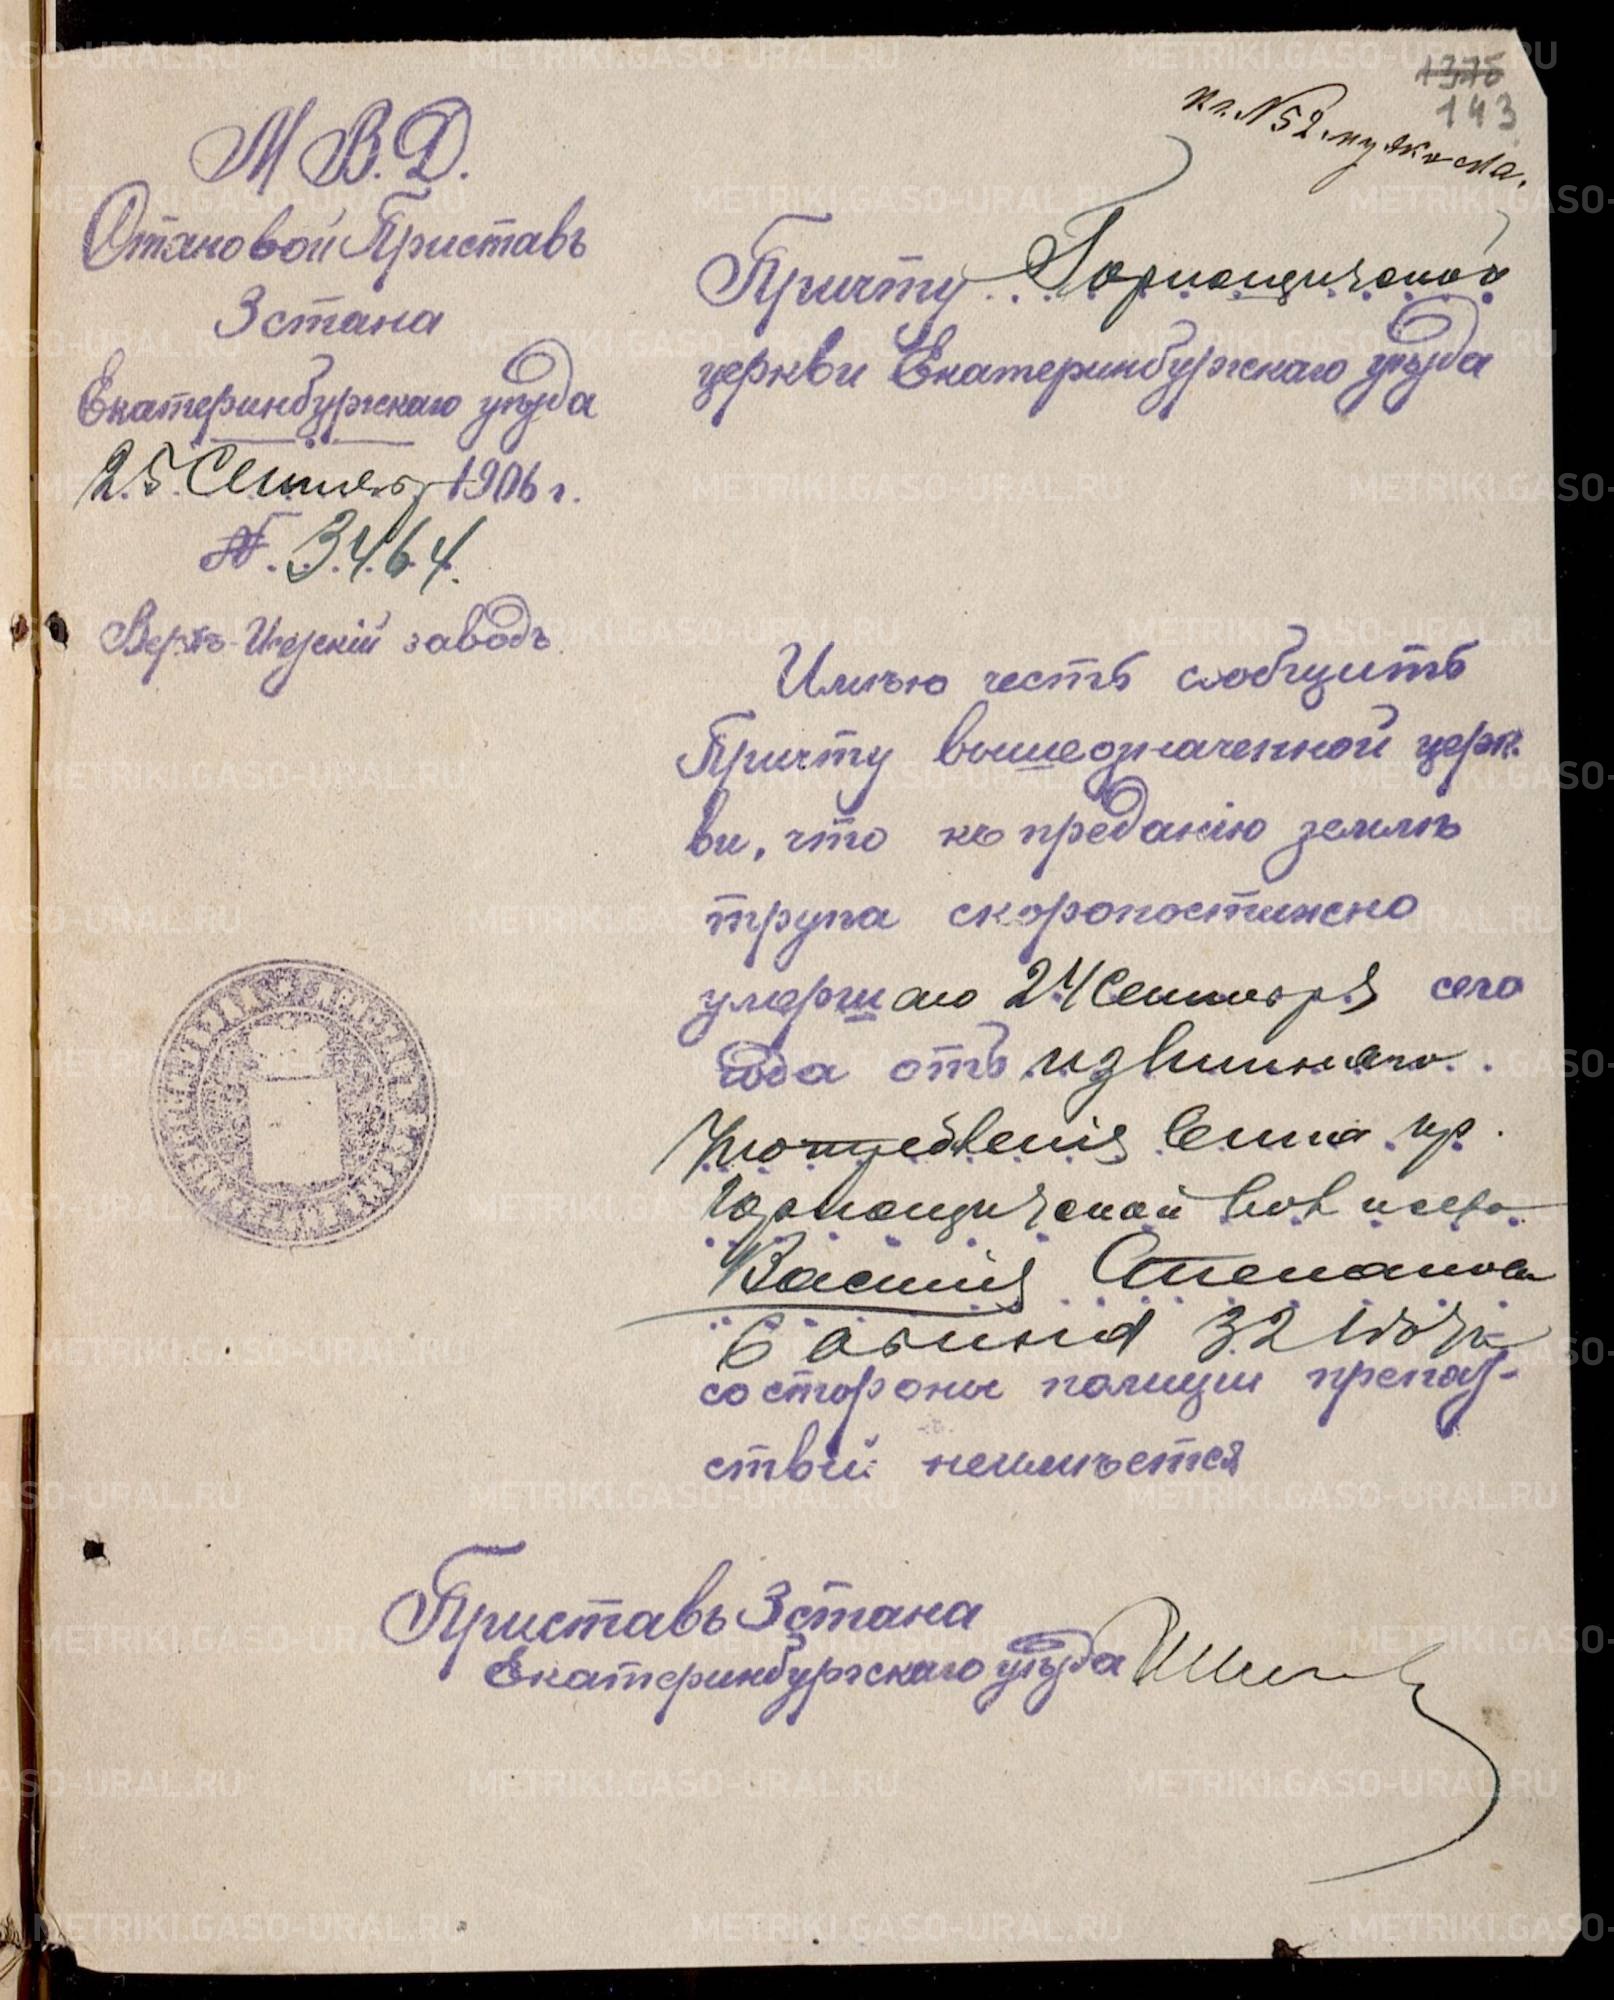 1376
143
кг. № 52. мужескa.
М. В. Д.
Становой Приставъ
3 стана
Екатеринбургскаго уѣзда
25 Сентября 1906 г.
№. 3464.
Верхъ-Исетскій заводъ.
Причту Горнощитской
церкви Екатеринбургскаго уѣзда
Имѣю честь сообщить
Причту вышеозначенной церк-
ви, что къ преданію землѣ
трупа скоропостижно
умершаго 24 Сентября сего
года отъ излишняго
употребленія вина кр.
Горнощитской вол. и села
Василія Степанова
32 годъ
со стороны полиции препят-
ствий неимѣется
Приставъ 3 стана
Екатеринбургскаго уѣзда
METRIKI.GASO-URAL.RU